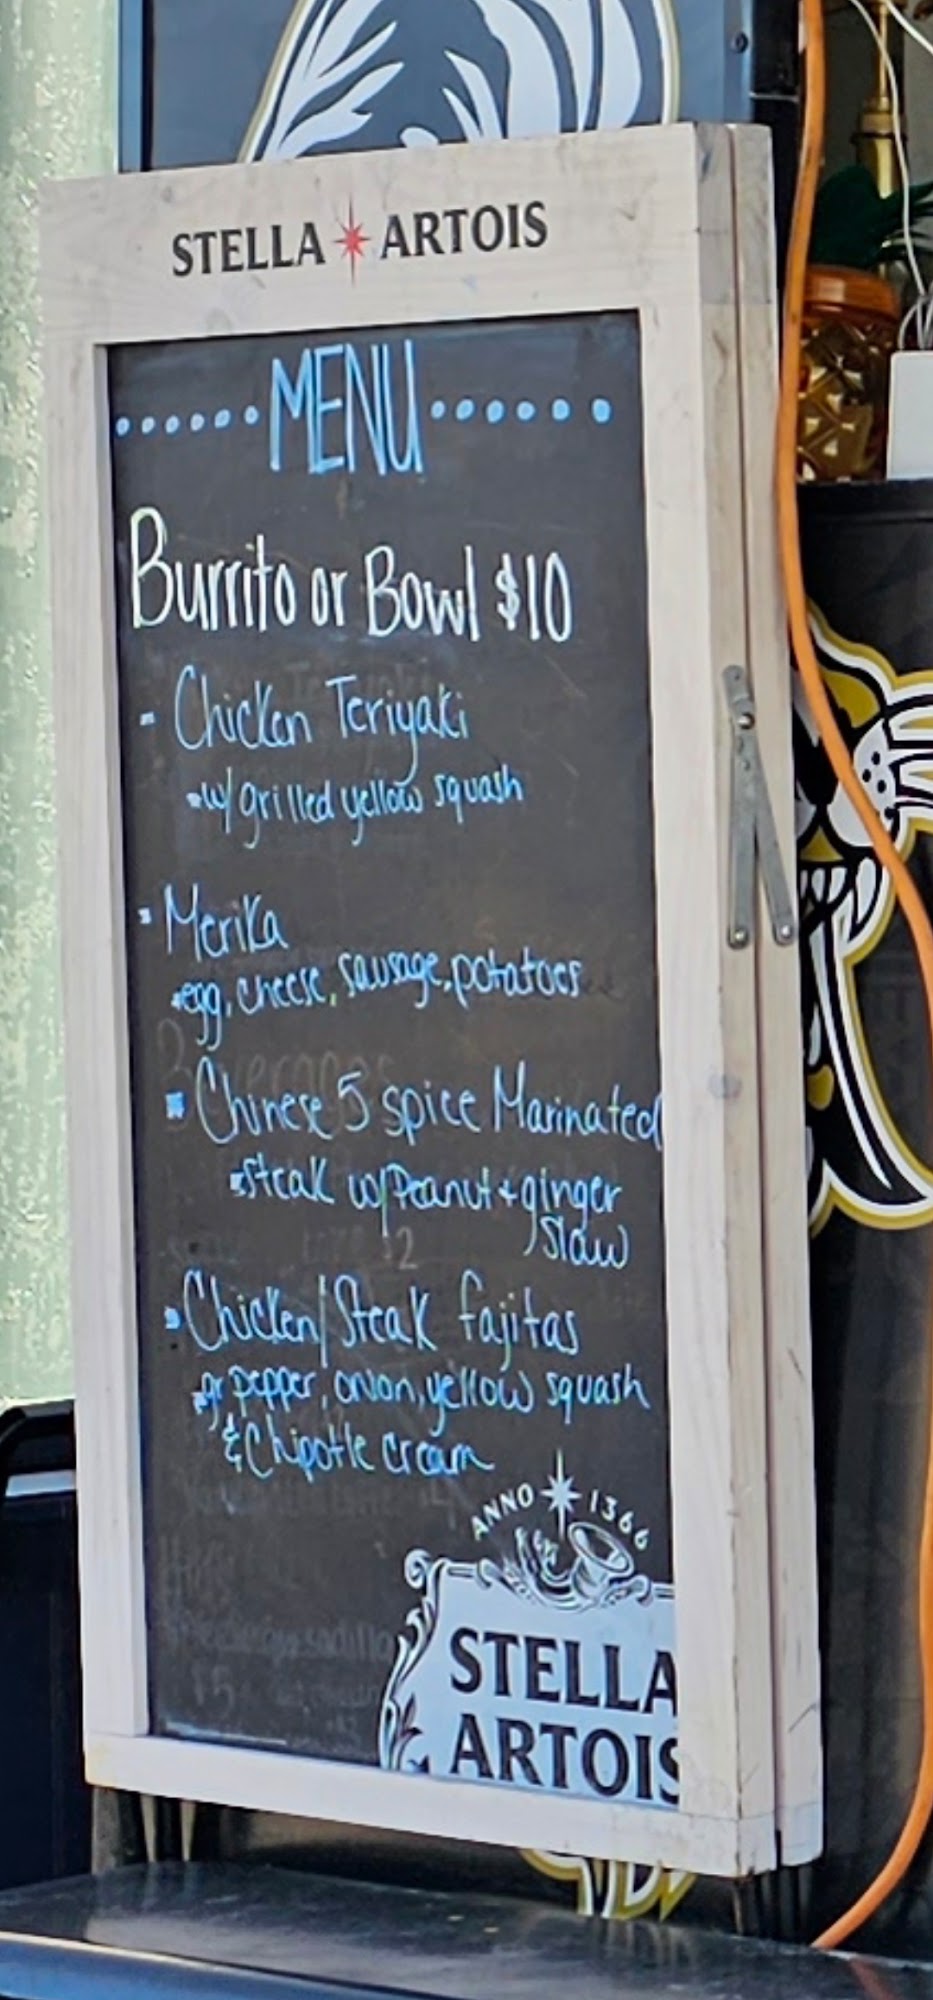 STELLA ARTOIS
MENU
Burrito or Bowl $10
- Chicken Teriyaki
- w/ grilled yellow squash
- Merika
- egg, cheese, sausage, potatoes
- Chinese 5 spice Marinated
- steak w/ Peanut + ginger
slaw
- Chicken/Steak fajitas
- gr pepper, onion, yellow squash
& Chipotle cream
ANNO 1366
STELLA
ARTOIS